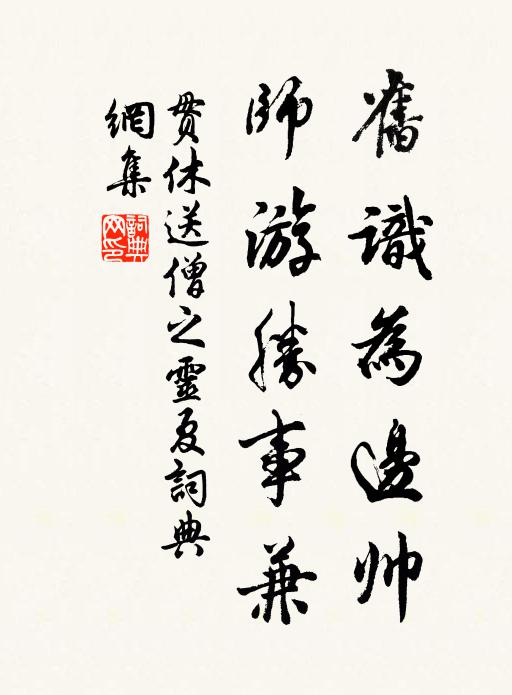 舊識為邊帥
師游勝事兼
貫休送僧之靈夏詞典
網集
詞典網印